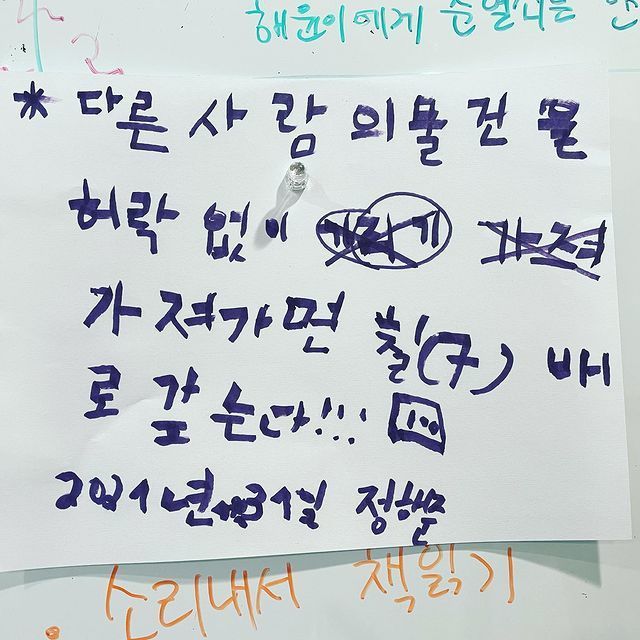 해윤이에게
* 다른 사람 의물건 을
허락 없이 가져
가져가면 칠(7) 배
로 갚는다!!!
2021년 31일
소리내서 책읽기